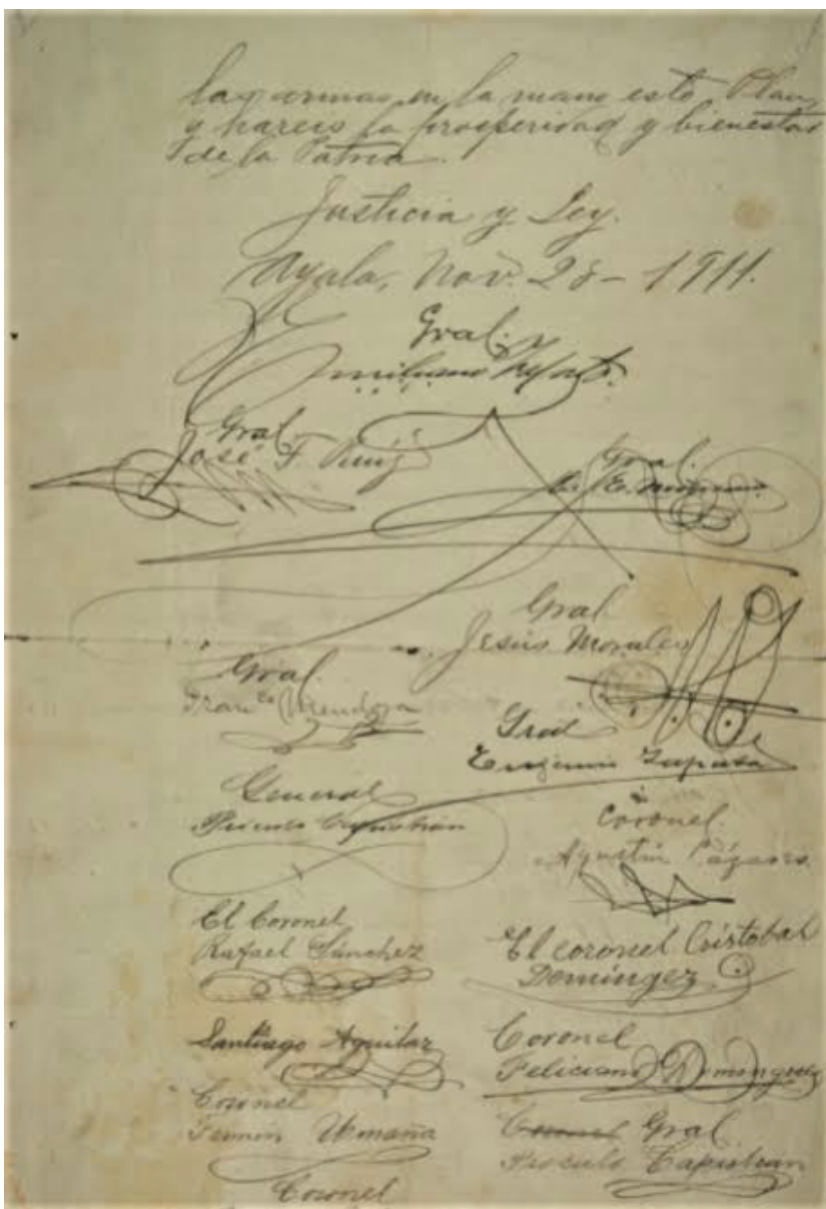 las armas en la mano este Plan,
y hareis la prosperidad y bienestar
de la Patria.
Justicia y Ley.
Ayala, Nov. 28-1911.
Gral.
Emiliano Zapata.
Gral.
José T. Ruíz
Gral.
O. E. Montaño.
Gral.
Jesús Morales
Gral.
Fran.co Mendoza
Gral
Eugenio Zapata
General
Próculo Capistrán
Coronel
Agustín Cázares.
El Coronel
Rafael Sánchez
El coronel Cristobal
Domíngez
Santiago Aguilar
Coronel
Feliciano Domínguez
Coronel
Fermin Omaña
Coronel Gral
Proculo Capistran
Coronel